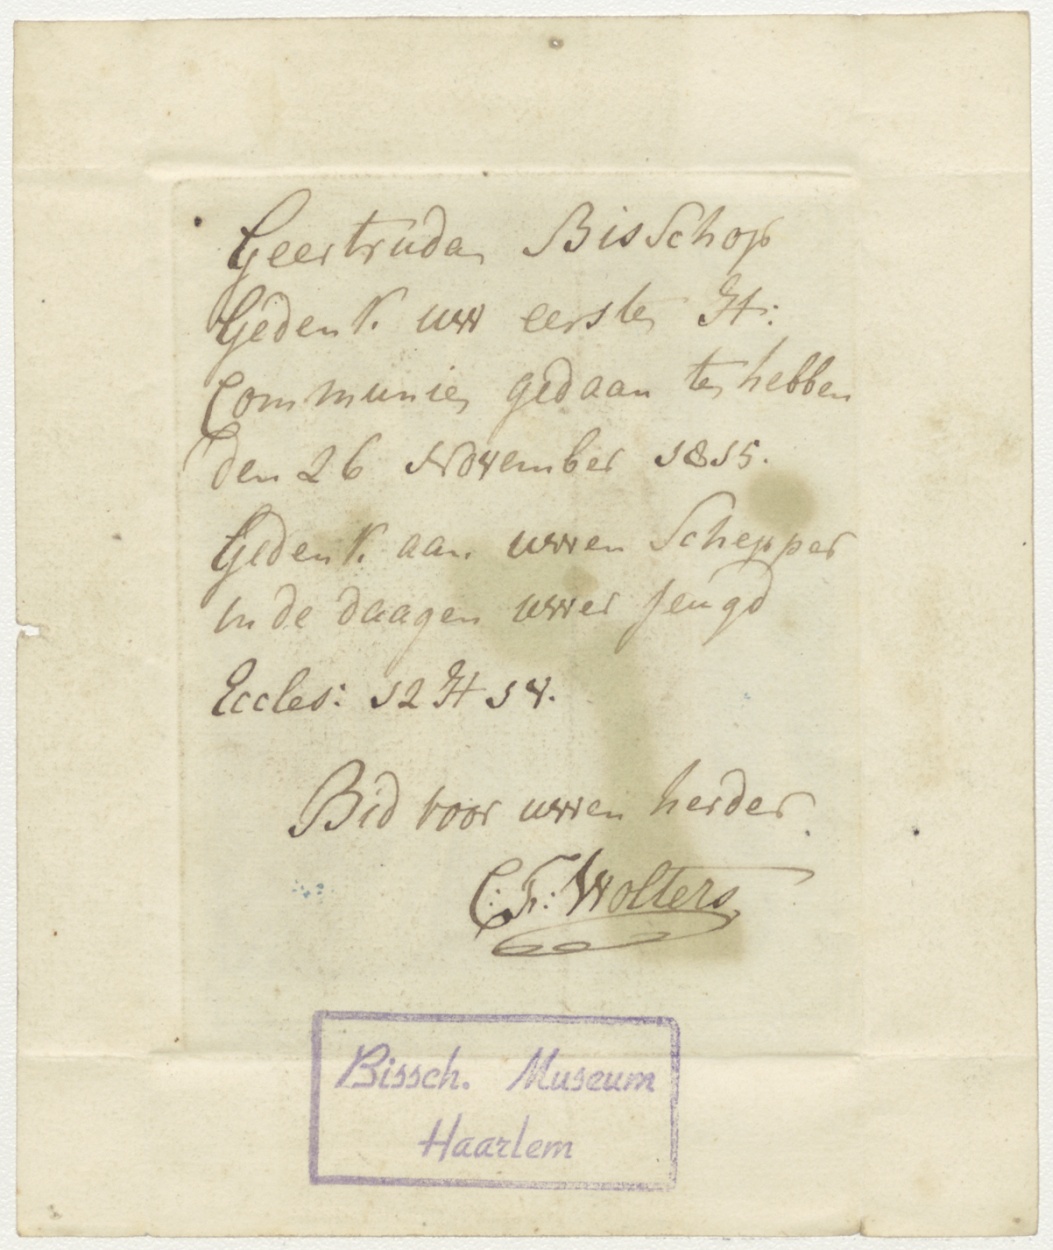 Geertruda Bisschop
Gedenk uw eerste H:
Communie gedaan te hebben
den 26 November 1815.
Gedenk aan uwen Schepper
in de daagen uwer jeugd
Eccles: 12 H 1 v.
Bid voor uwen herder.
C: F: Wolters
Bissch. Museum
Haarlem